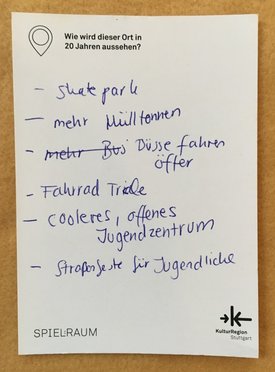 Wie wird dieser Ort in
20 Jahren aussehen?
- Skate park
- mehr Mülltonnen
- mehr Bus Düsse fahren
öffer
- Fahrrad Trale
- cooleres, offenes
Jugendzentrum
- Straßenfeste für Jugendliche
SPIEL:RAUM
KulturRegion
Stuttgart